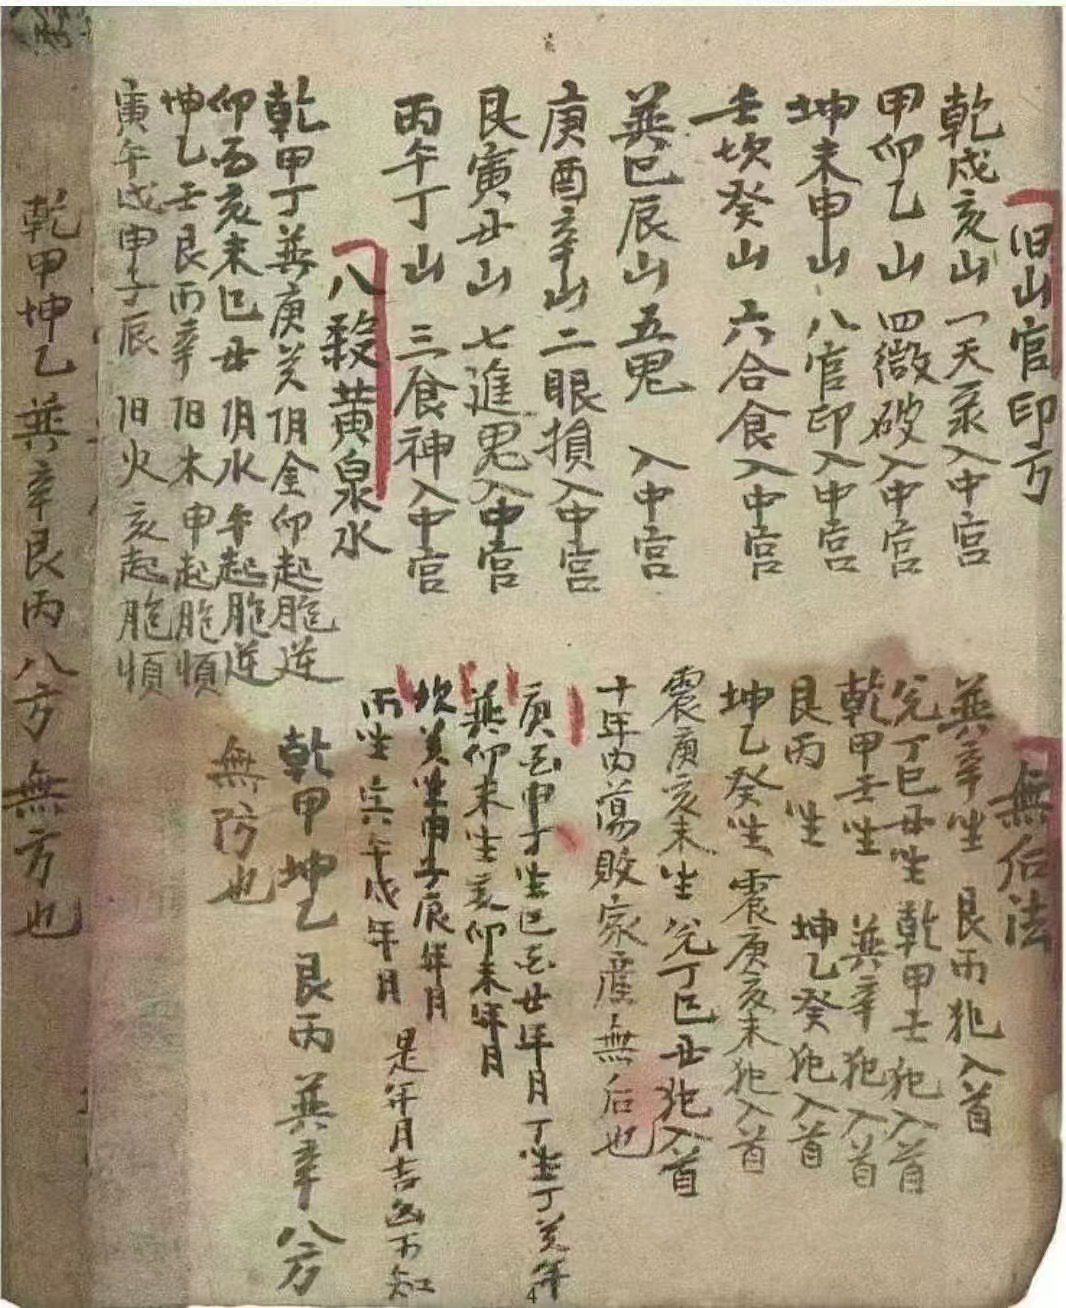 旧山官印方
乾戌亥山一天祿入中宮
甲卯乙山四徵破入中宮
坤未申山八官印入中宮
壬坎癸山六合食入中宮
巽巳辰山五鬼入中宮
庚酉辛山二眼損入中宮
艮寅丑山七進鬼入中宮
丙午丁山三食神入中宮
八殺黄泉水
乾甲丁巽庚癸阴金卯起胞逆
卯亥未巳丑阴水午起胞逆
坤乙壬艮丙辛阳木申起胞順
寅午戌申子辰阳火亥起胞順
無后法
巽辛坐艮丙犯入首
兌丁巳丑坐乾甲壬犯入首
乾甲壬坐巽辛犯入首
艮丙坐坤乙癸犯入首
坤乙癸坐震庚亥未犯入首
震庚亥未坐兌丁巳丑犯入首
十年內蕩敗家產無后也
庚申丁坐巳丑年月丁坐丁癸年
巽卯未坐亥卯未年月
坎癸坐申子辰年月
丙坐寅午戌年月是年月吉凶不知
乾甲坤乙艮丙巽辛八方
無防也
乾甲坤乙巽辛艮丙八方無方也
4